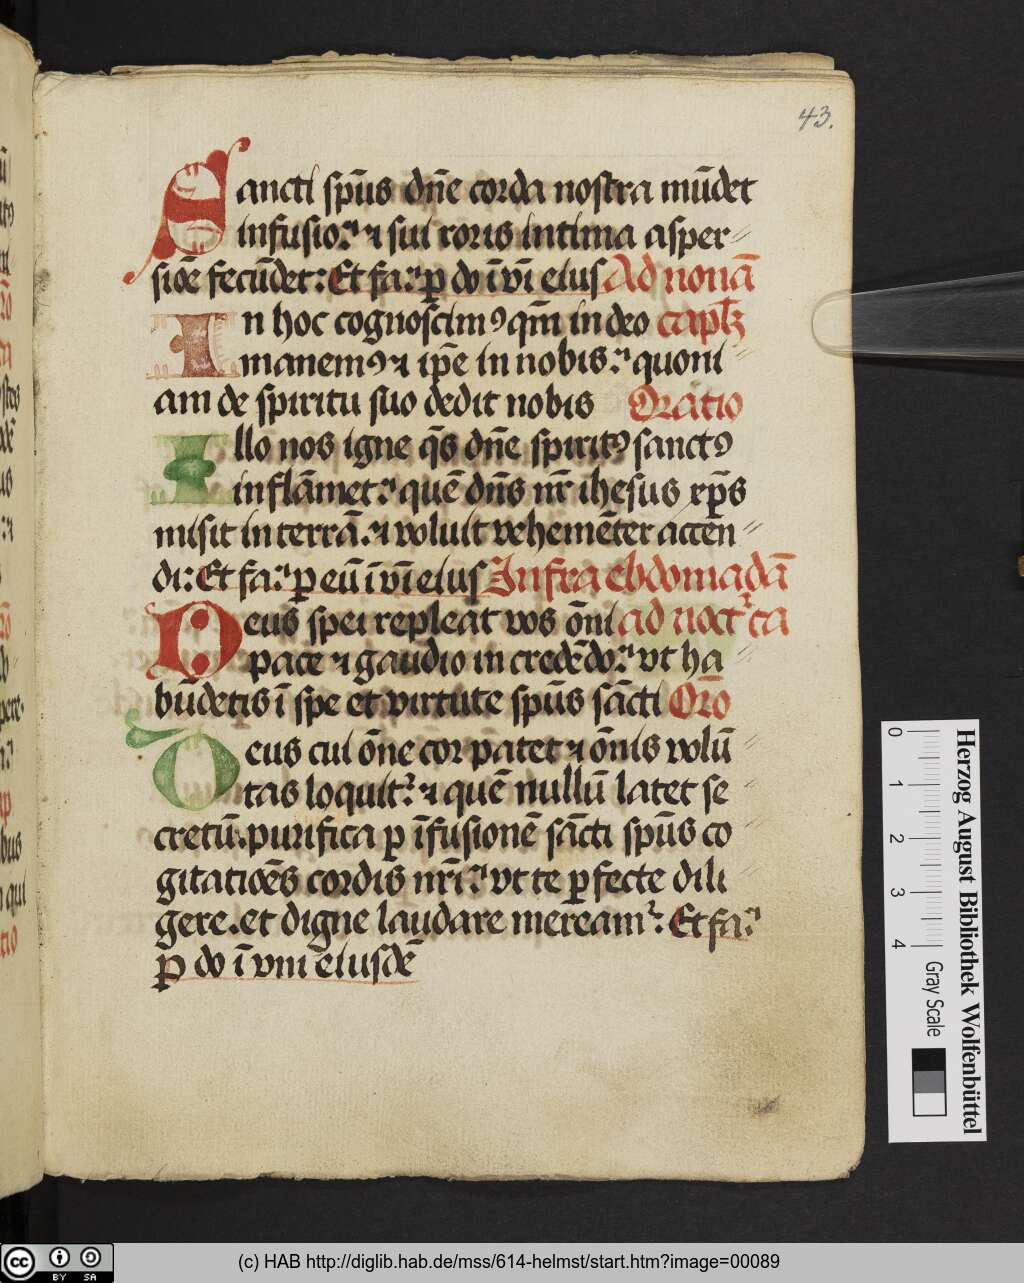 43.
Sancti spūs dn̄e corda nostra mūdet
infusio: ⁊ sui roris intima asper⸗
siōe fecūdet: Et fa: ꝑ do ī vī eius Ad nonā
In hoc cognoscimꝰ qm̄ in deo
manemꝰ ⁊ ip̄e in nobis: quoni
am de spiritu suo dedit nobis Oratio
Illo nos igne q̄s dn̄e spiritꝰ sanctꝰ
inflāmet: quē dn̄s nr̄ ihesus xp̄s
misit in terrā: ⁊ voluit vehemēter accēn⸗
di: Et fa: ꝑ eū ī vī eius Infra ebdomadā
Deus spei repleat vos ōni ad noct ca
pace ⁊ gaudio in credēdo: vt ha
būdetis ī spe et virtute spūs sācti Oro
Deus cui ōne cor patet ⁊ ōnis volū
tas loquit: ⁊ quē nullū latet se
cretū. purifica ꝑ īfusionē sācti spūs co
gitatiōēs cordis nr̄i: vt te ꝑfecte dili
gere. et digne laudare meream: Et fa:
ꝑ do ī vni eiusdē
0 1 2 3 4
Gray Scale
Herzog August Bibliothek Wolfenbüttel
cc BY SA
(c) HAB http://diglib.hab.de/mss/614-helmst/start.htm?image=00089